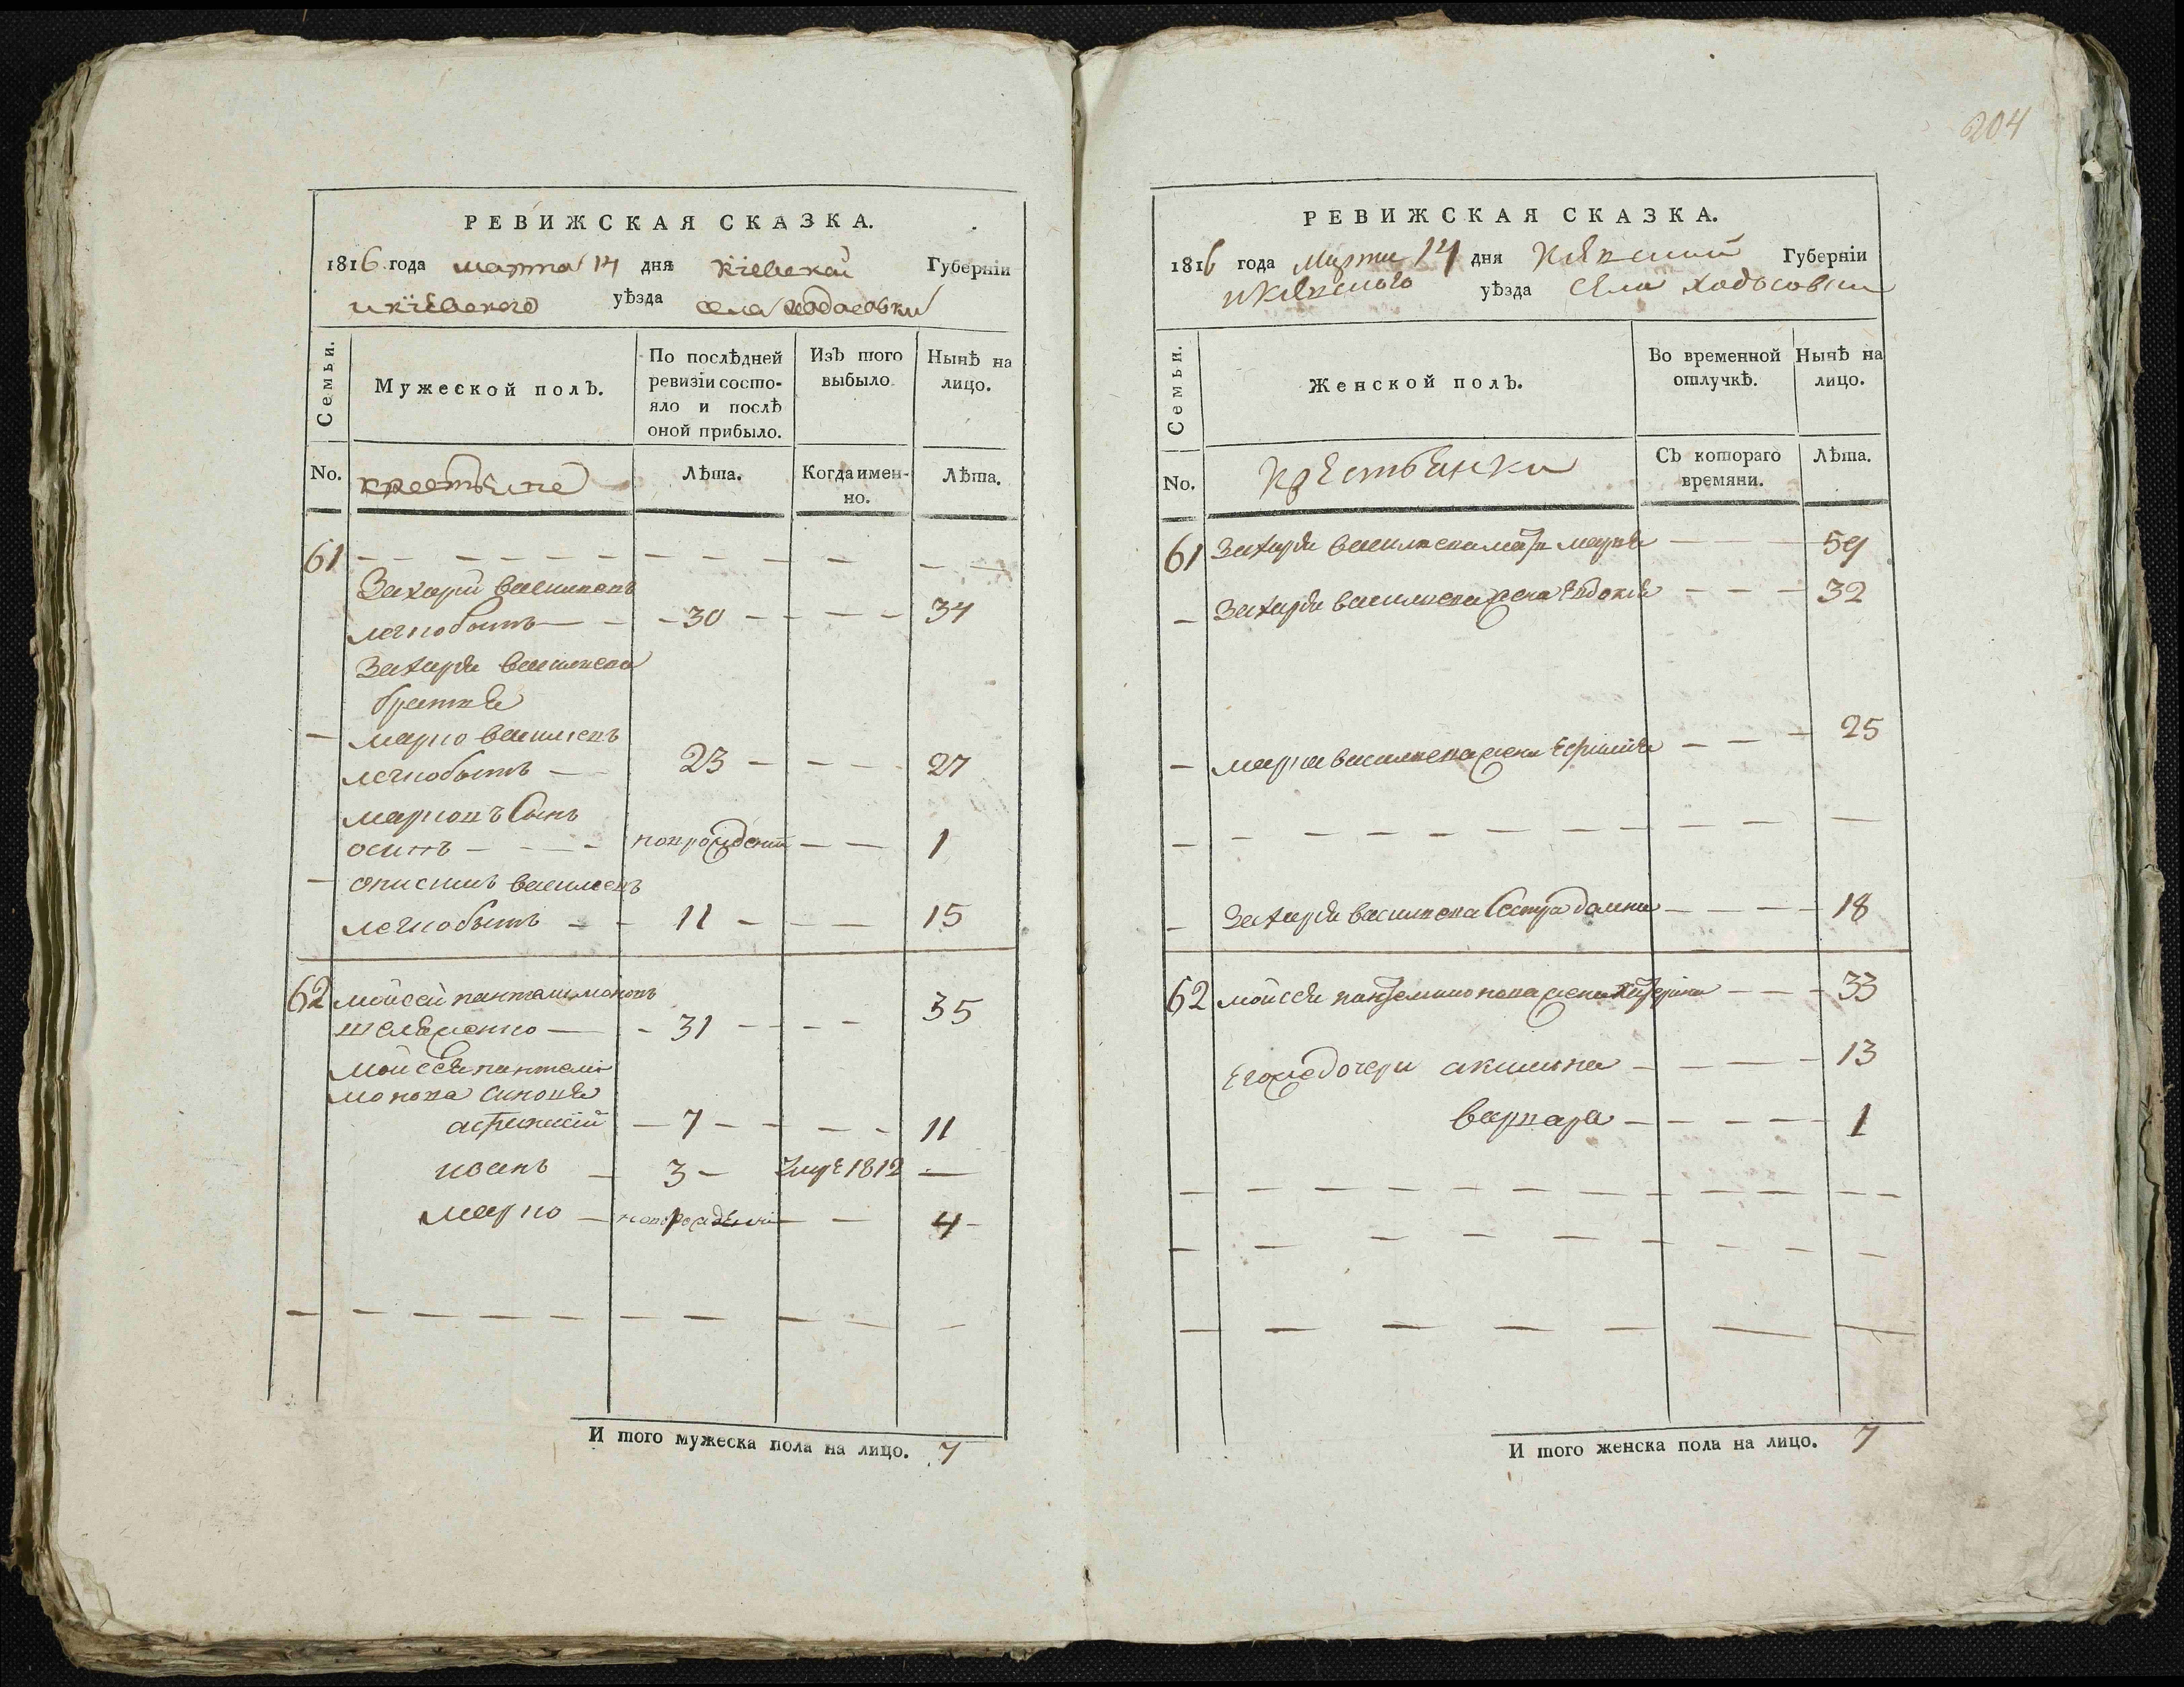 РЕВИЖСКАЯ СКАЗКА.
1816 года марта 14 дня кіевской Губерніи
и кіевского уѣзда села ходосовки
Семьи.
Мужеской полъ.
По послѣдней ревизіи состояло и послѣ оной прибыло.
Изъ того выбыло.
Нынѣ на лицо.
No. крестьяне Лѣта. Когда именно. Лѣта.
61
Захарій василиевъ
легкобытъ 30 34
Захарія василиева
братья
марко василиевъ
легкобытъ 23 27
марковъ Сынъ
осипъ новорожденій 1
онисимъ василиевъ
легкобытъ 11 15
62 мойсей пантелимоновъ
31 35
мойсея пантели
монова синовя
7 11
иванъ 3 умре 1812
марко новорожденій 4
И того мужеска пола на лицо. 7
204
РЕВИЖСКАЯ СКАЗКА.
1816 года Марта 14 дня Кіевской Губерніи
и Кіевского уѣзда Села Ходосовки
Семьи.
Женской полъ.
Во временной отлучкѣ.
Нынѣ на лицо.
No. Крестьянки Съ котораго времяни. Лѣта.
61 Захарія василиева мать марья 59
Захарія василиева жена Евдокія 32
марка василиева жена 25
Захарія василиева Сестра домна 18
62 мойсея пантелимонова жена 33
Егожедочери акилина 13
варвара 1
И того женска пола на лицо. 7